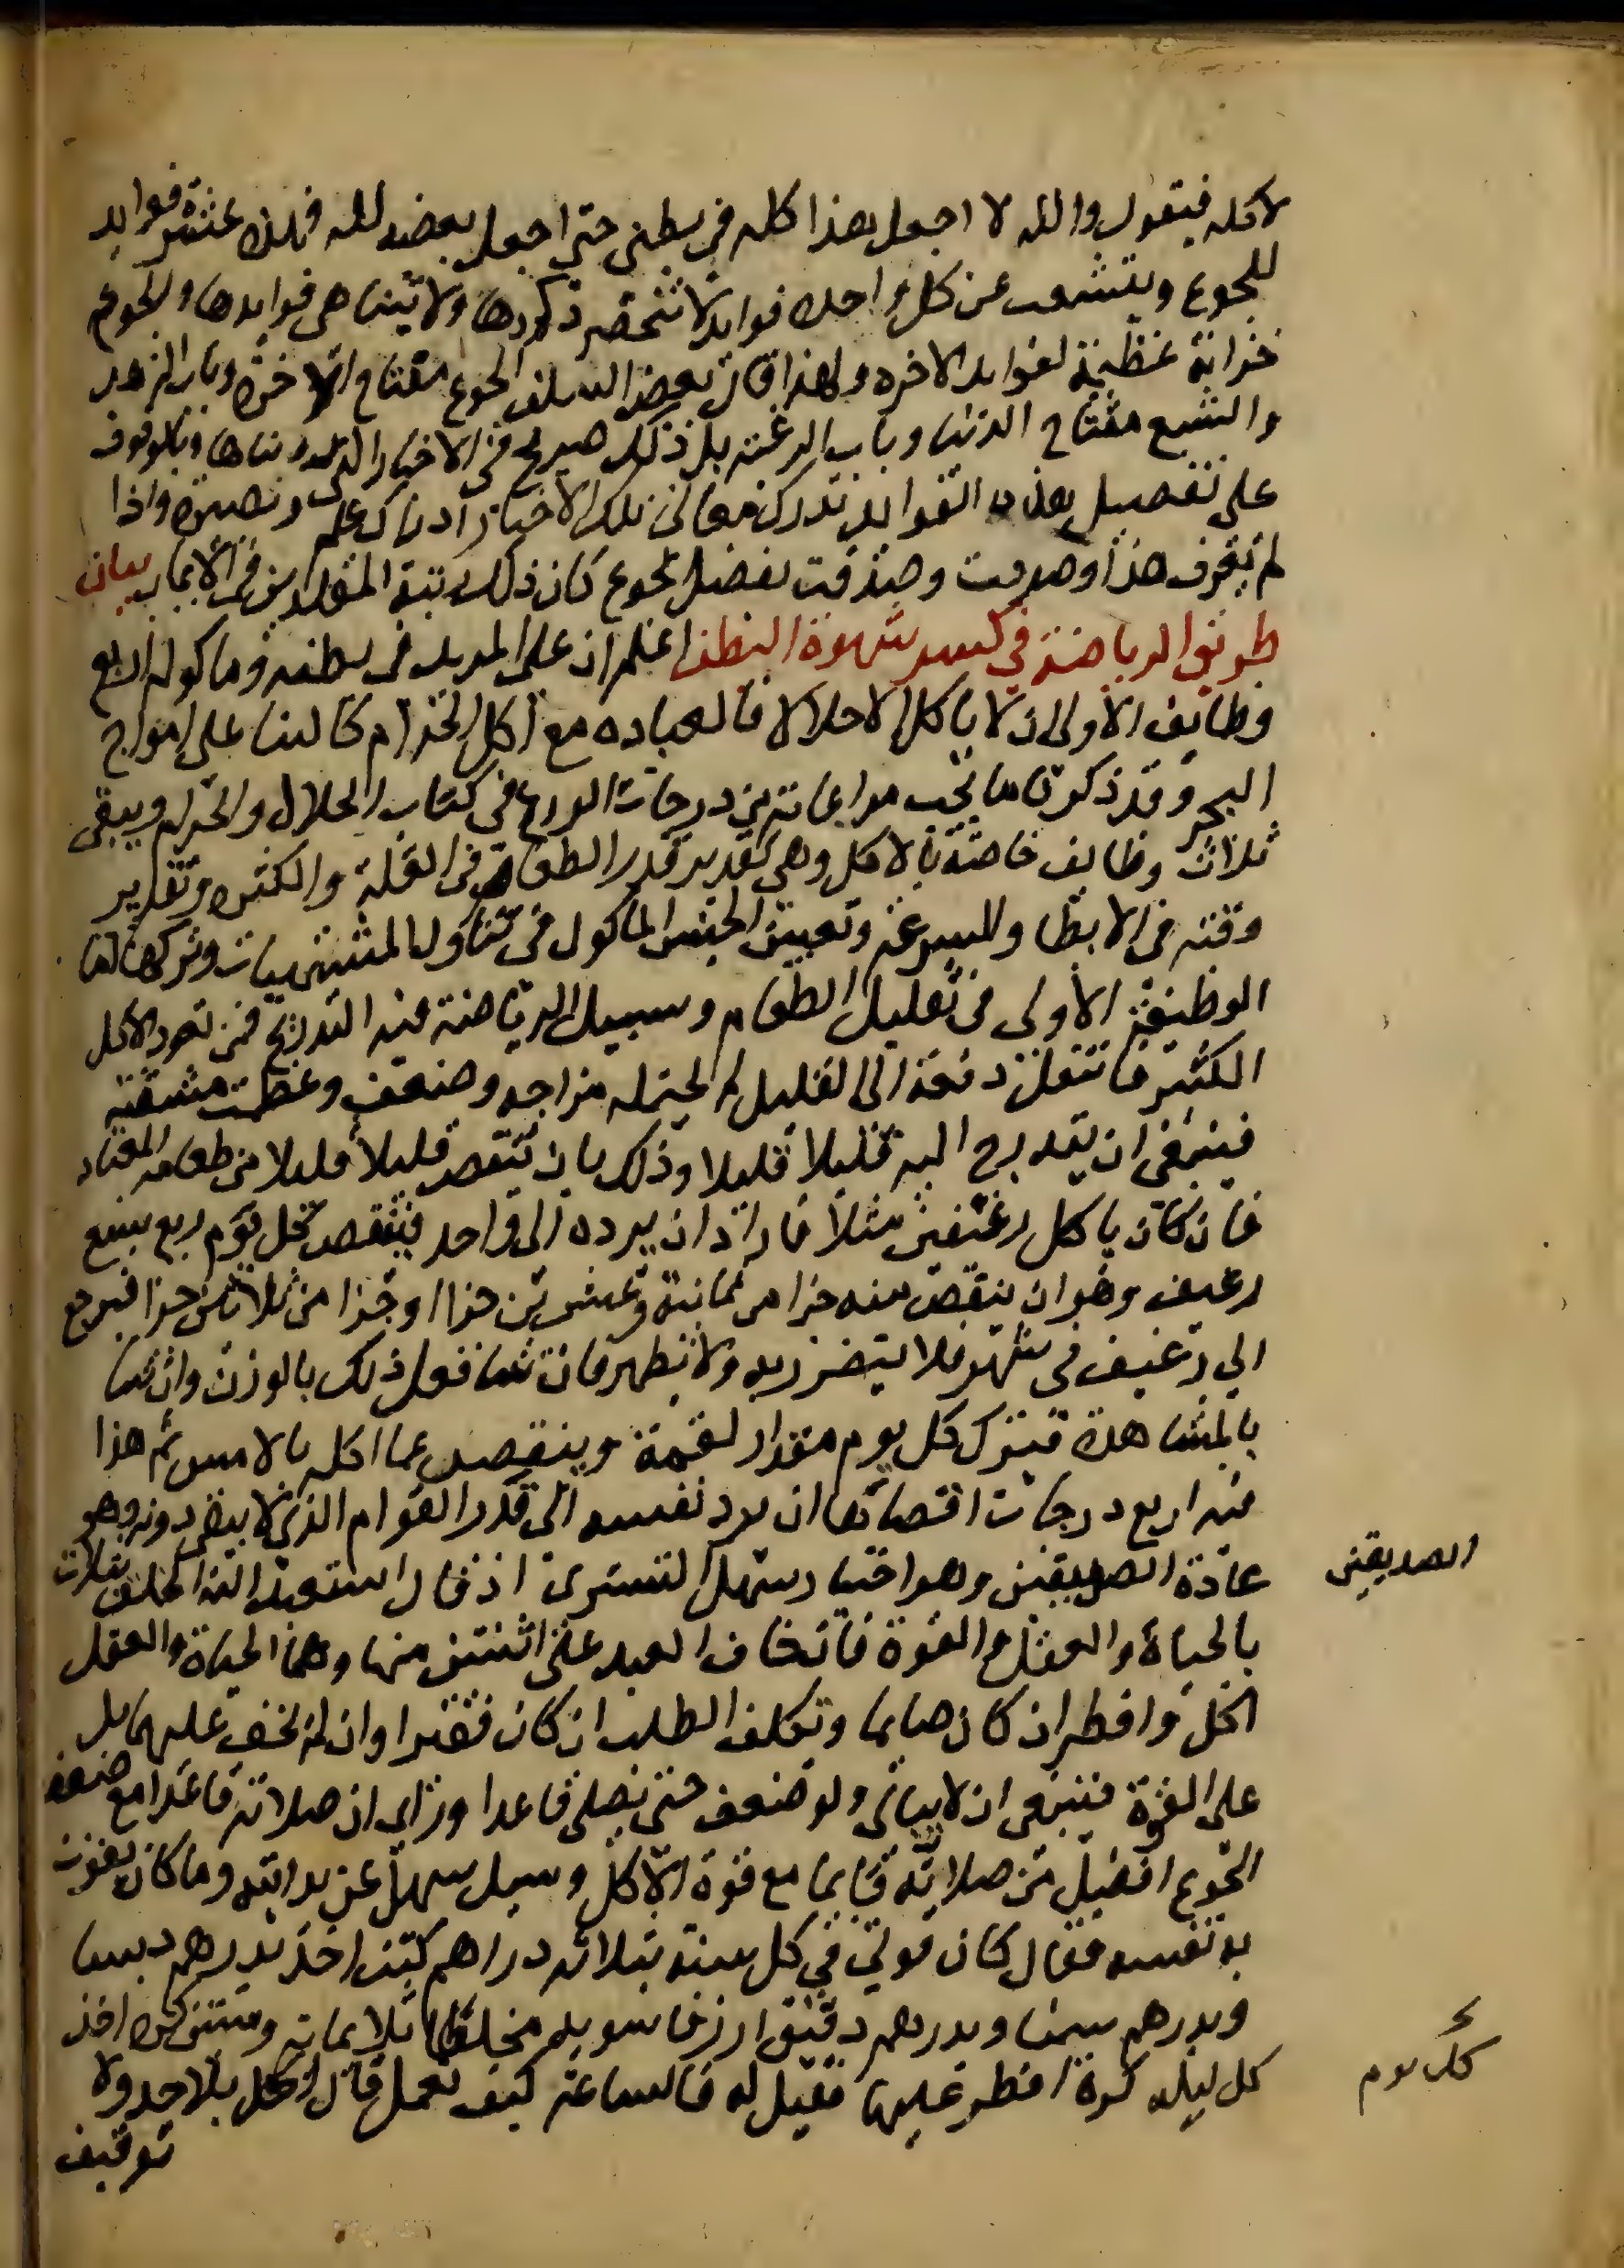 لاكله فيقول والله لا اجعل هذا كله في بطني حتى اجعل بعضه لله فهذه عشر فوايد
للجوع ويتشعب عن كل واحده فوايد لا تنحصر ذكرها ولا تتناهى فوايدها والجوع
خزانة عظيمة لفوايد الاخره ولهذا قال بعض السلف الجوع مفتاح الاخرة وباب الزهد
والشبع مفتاح الدنيا وباب الرغبة بل ذلك صريح في الاخبار التي رويناها وبالوقوف
على تفصيل هذه الفوايد تدرك معاني تلك الاخبار ادراك علم وبصيرة واذا
لم تعرف هذا وصدقت بفضل الجوع كان ذلك رتبة المقلدين في الايمان بيان
طريق الرياضة في كسر شهوة البطن اعلم ان على المريد في بطنه وماكوله اربع
وظايف الاولى ان لا ياكل الا حلالا فالعباده مع اكل الحرام كالبنا على امواج
البحر وقد ذكرنا ما يجب مراعاته من درجات الورع في كتاب الحلال والحرام ويبقى
ثلاث وظايف خاصة بالاكل وهي تقدير قدر الطعام في القلة والكثره وتقدير
وقته في الابطا والسرعة وتعيين الجنس الماكول في تناول المشتهيات وتركها اما
الوظيفة الاولى في تقليل الطعام وسبيل الرياضة فيه التدريج فمن تعود الاكل
الكثير فانتقل دفعة الى القليل لم يحتمله مزاجه وضعف وعظمت مشقته
فينبغي ان يتدرج اليه قليلا قليلا وذلك بان ينقص قليلا قليلا من طعامه المعتاد
فان كان ياكل رغيفين مثلا فاراد ان يرده الى واحد فينقص كل يوم ربع سبع
رغيف وهو ان ينقص منه جزا من ثمانية وعشرين جزاا وجزا من ثلاثين جزا فيرجع
الى رغيف في شهر ولا يتضرر به ولا يظهر فان شا فعل ذلك بالوزن وان شا
بالمشاهدة فيترك كل يوم مقدار لقمة وينقصه عما اكله بالامس ثم هذا
فيه اربع درجات اقصاها ان يرد نفسه الى قدر القوام الذي لا يبقى دونه وهو
عادة الصديقين وهو اختيار سهل التستري اذ قال استعبد الله الخلق بثلاث
الصديقين
بالحياة والعقل والقوة فان خاف العبد على اثنتين منها وهما الحياة والعقل
اكل وافطر ان كان صايما وتكلف الطلب ان كان فقيرا وان لم يخف عليهما بل
على القوة فينبغي ان لا يبالي ولو ضعف حتى يصلي قاعدا وراى ان صلاته قاعدا مع ضعف
الجوع افضل من صلاته قايما مع قوة الاكل وسيل سهل عن بدايته وما كان يقوت
به نفسه فقال كان قوتي في كل سنه بثلاثه دراهم كنت اخذ بدرهم دبسا
وبدرهم سمنا وبدرهم دقيق ارز فاسويه مخلطا ثلاثماية وستين كره اخذ
كل ليله كرة افطر عليها فقيل له فالساعة كيف تعمل قال اكل بلا حد ولا
كل يوم
توقيف